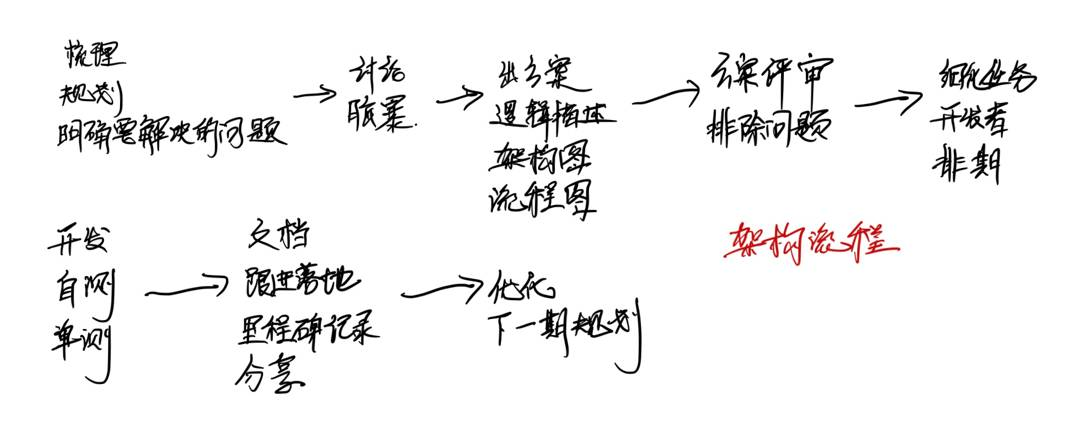 梳理
规划
明确要解决的问题
讨论
脑暴.
出方案
逻辑描述
架构图
流程图
方案评审
排除问题
细化任务
开发者
排期
架构流程
开发
自测
单测
文档
跟进落地
里程碑记录
分享
优化
下一期规划